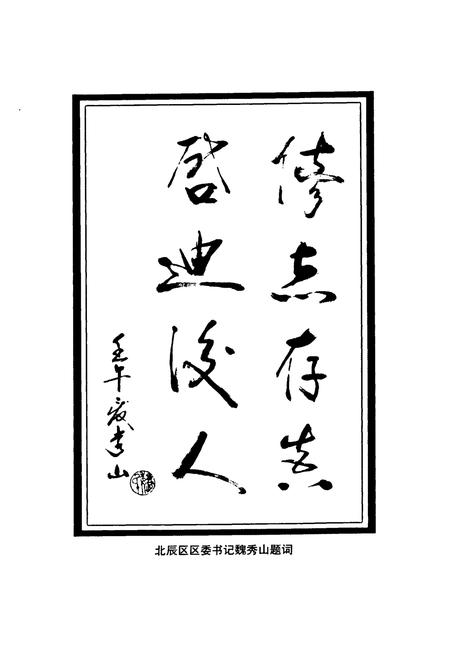 修志存真
啓迪後人
壬午歲秀山
北辰区区委书记魏秀山题词